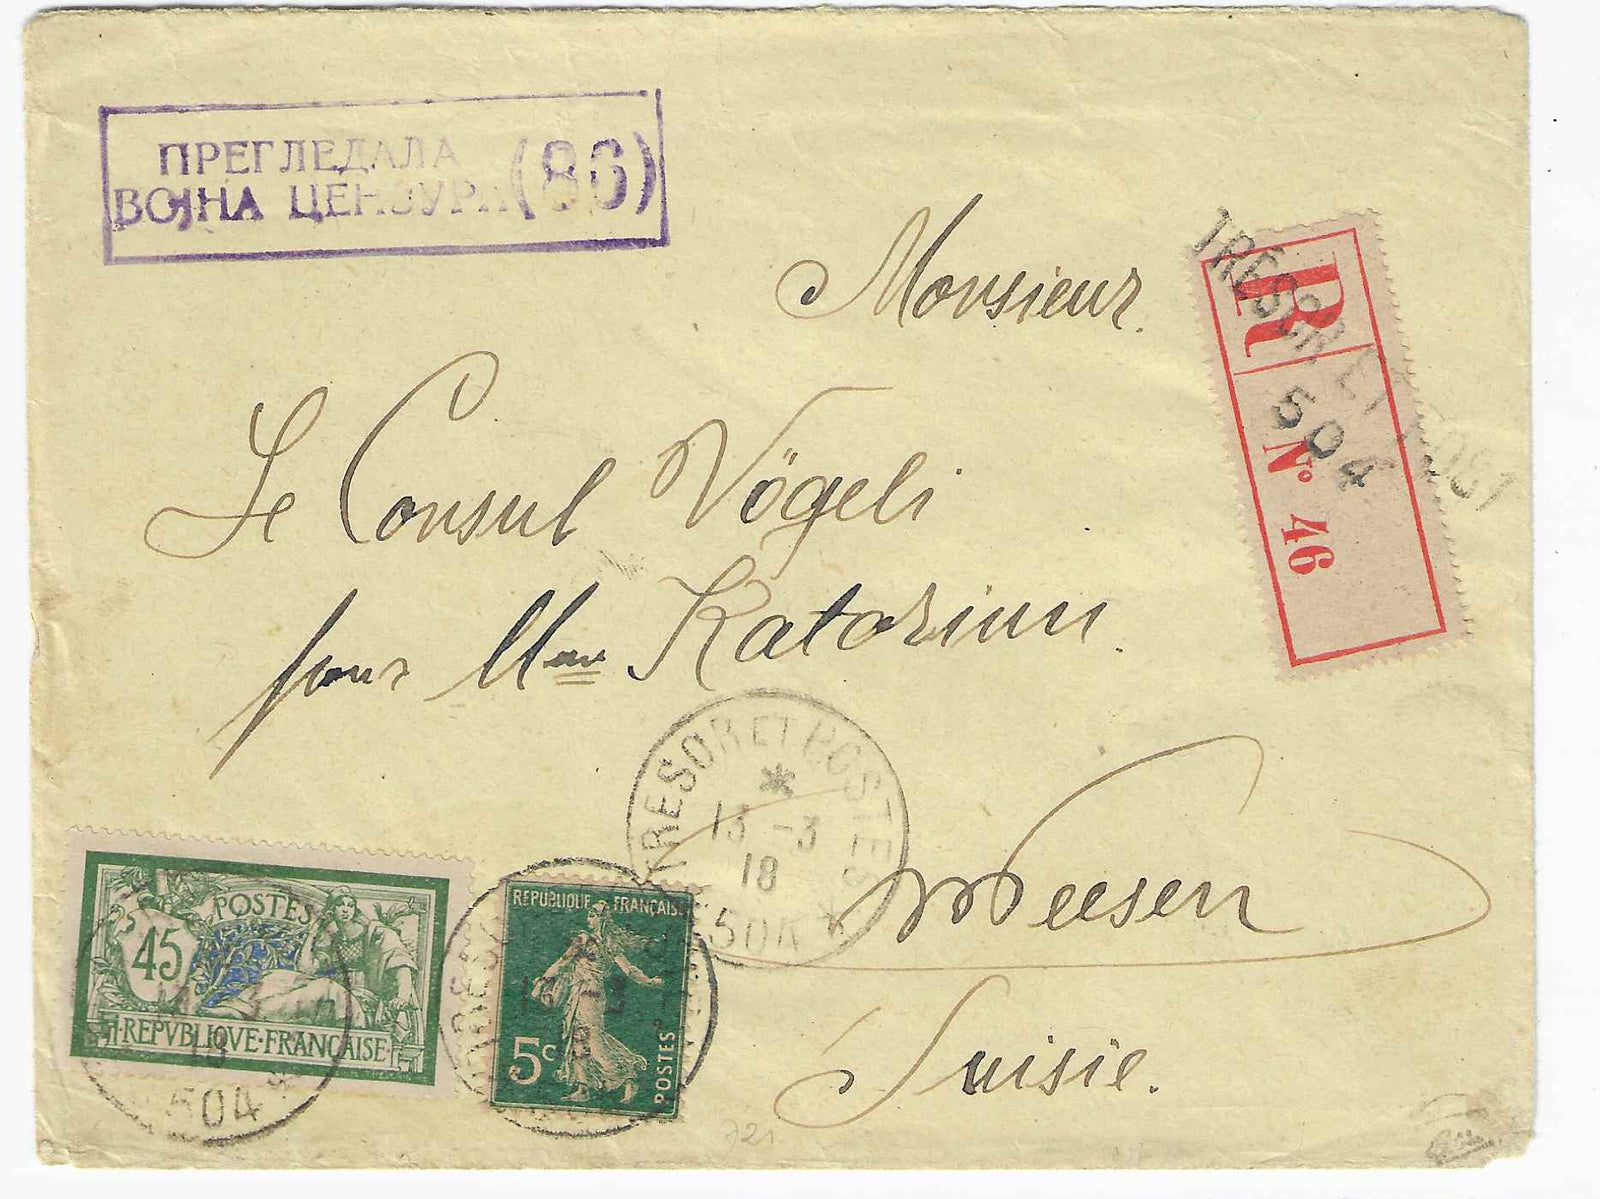 ПРЕГЛЕДАЛА
ВОЈНА ЦЕНЗУРА (86)
TRÉSOR ET POSTES
504
R
N° 46
Monsieur.
Le Consul Vögeli
pour Mme Katorinn.
Weesen
Suisie.
TRESOR ET POSTES
*
13 -3
18
504
POSTES
45
REPVBLIQVE·FRANÇAISE
504
REPUBLIQUE FRANÇAISE
13 -3
18
5c
POSTES
721